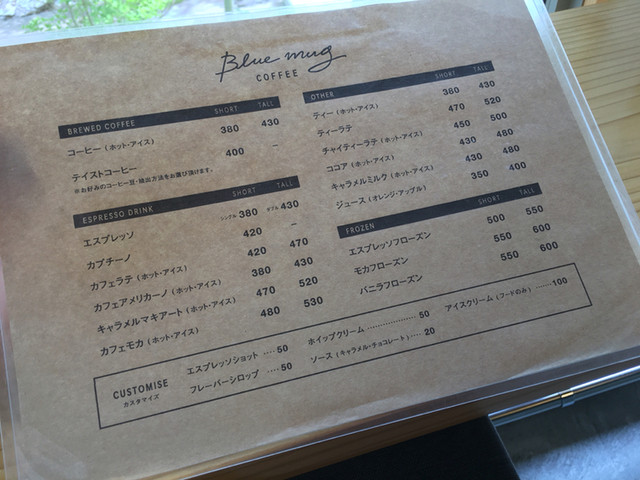 Blue mug
COFFEE
BREWED COFFEE SHORT TALL
コーヒー（ホット・アイス） 380 430
テイストコーヒー 400 –
※お好みのコーヒー豆・抽出方法をお選び頂けます。
ESPRESSO DRINK SHORT TALL
エスプレッソ シングル 380 ダブル 430
カプチーノ 420 –
カフェラテ（ホット・アイス） 420 470
カフェアメリカーノ（ホット・アイス） 380 430
キャラメルマキアート（ホット・アイス） 470 520
カフェモカ（ホット・アイス） 480 530
OTHER SHORT TALL
ティー（ホット・アイス） 380 430
ティーラテ 470 520
チャイティーラテ（ホット・アイス） 450 500
ココア（ホット・アイス） 430 480
キャラメルミルク（ホット・アイス） 430 480
ジュース（オレンジ・アップル） 350 400
FROZEN SHORT TALL
エスプレッソフローズン 500 550
モカフローズン 550 600
バニラフローズン 550 600
CUSTOMISE
カスタマイズ
エスプレッソショット ‥‥ 50
フレーバーシロップ ‥‥ 50
ホイップクリーム ‥‥‥‥‥‥ 50
ソース（キャラメル・チョコレート）‥‥ 20
アイスクリーム（フードのみ）‥‥‥ 100